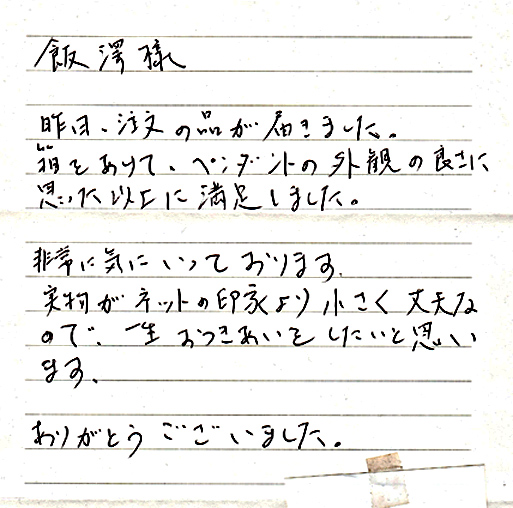 飯澤様
昨日、注文の品が届きました。
箱をあけて、ペンダントの外観の良さに
思った以上に満足しました。
非常に気にいっております。
実物がネットの印象より小さく丈夫な
ので、一生おつきあいをしたいと思い
ます。
ありがとうございました。